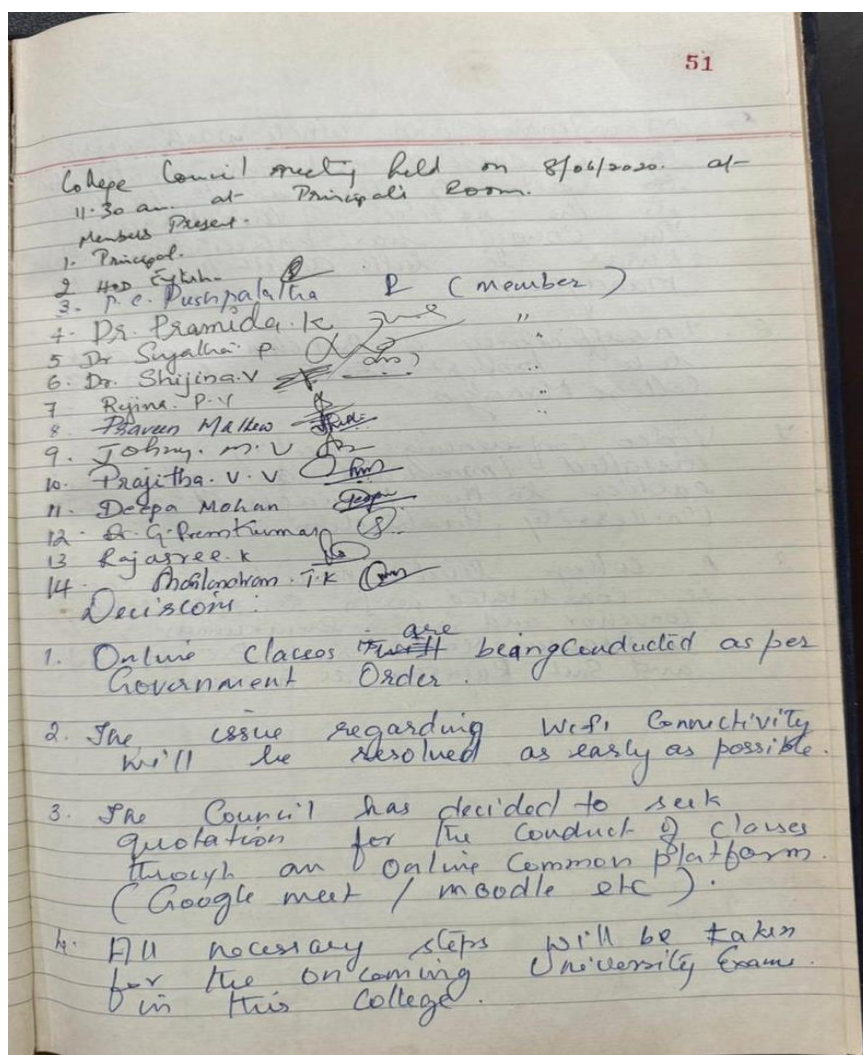 51
College Council meeting held on 8/06/2020. at
11.30 am. at Principal's Room.
Members Present.
1. Principal.
2 HOD English
3. P. C. Pushpalatha (member)
4. Dr. Pramida. K "
5 Dr Sujatha P. "
6. Dr. Shijina.V "
7 Rejina. P.V "
8 Praveen Mathew
9. Johny. M.V
10. Prajitha. V.V
11. Deepa Mohan
12. Dr. G. Premkumar
13 Rajasree. K
14. T.K
Decisions :
1. Online classes are being conducted as per
Government Order.
2. The issue regarding Wifi Connectivity
will be resolved as early as possible.
3. The Council has decided to seek
quotation for the conduct of classes
through an Online Common platform.
(Google meet / moodle etc).
4. All necessary steps will be taken
for the oncoming University Exams.
in this College.